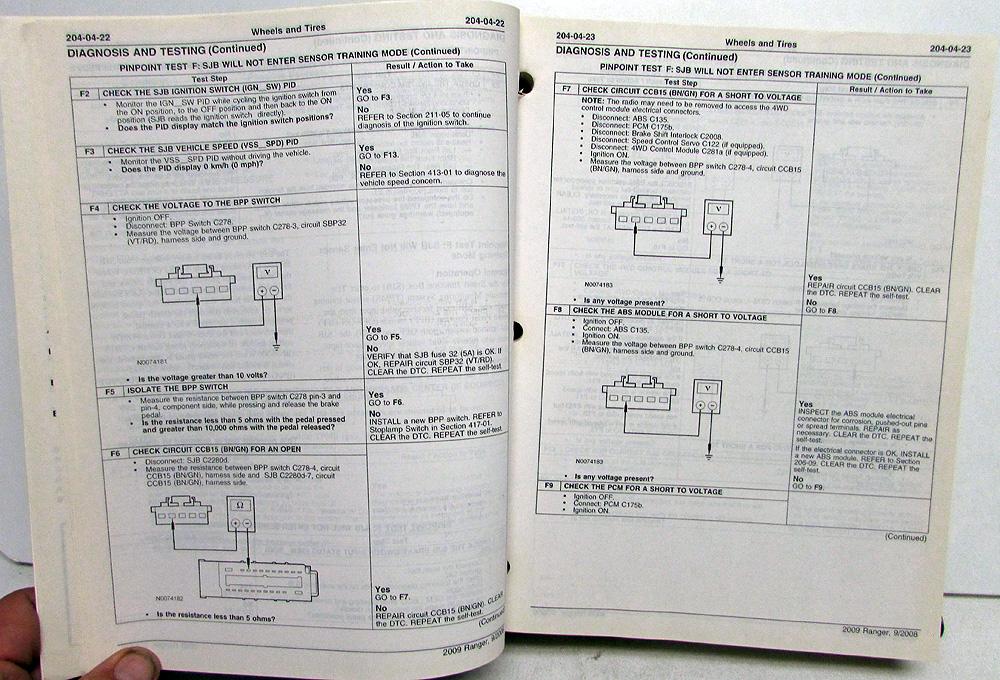 204-04-22
Wheels and Tires
204-04-22
DIAGNOSIS AND TESTING (Continued)
PINPOINT TEST F: SJB WILL NOT ENTER SENSOR TRAINING MODE (Continued)
Test Step
Result / Action to Take
F2 CHECK THE SJB IGNITION SWITCH (IGN_SW) PID
• Monitor the IGN_SW PID while cycling the ignition switch from
the ON position, to the OFF position and then back to the ON
position (SJB reads the ignition switch directly).
• Does the PID display match the ignition switch positions?
Yes
GO to F3.
No
REFER to Section 211-05 to continue
diagnosis of the ignition switch.
F3 CHECK THE SJB VEHICLE SPEED (VSS_SPD) PID
• Monitor the VSS_SPD PID without driving the vehicle.
• Does the PID display 0 km/h (0 mph)?
Yes
GO to F13.
No
REFER to Section 413-01 to diagnose the
vehicle speed concern.
F4 CHECK THE VOLTAGE TO THE BPP SWITCH
• Ignition OFF.
• Disconnect: BPP Switch C278.
• Measure the voltage between BPP switch C278-3, circuit SBP32
(VT/RD), harness side and ground.
V
N0074181
• Is the voltage greater than 10 volts?
Yes
GO to F5.
No
VERIFY that SJB fuse 32 (5A) is OK. If
OK, REPAIR circuit SBP32 (VT/RD).
CLEAR the DTC. REPEAT the self-test.
F5 ISOLATE THE BPP SWITCH
• Measure the resistance between BPP switch C278 pin-3 and
pin-4, component side, while pressing and release the brake
pedal.
• Is the resistance less than 5 ohms with the pedal pressed
and greater than 10,000 ohms with the pedal released?
Yes
GO to F6.
No
INSTALL a new BPP switch. REFER to
Stoplamp Switch in Section 417-01.
CLEAR the DTC. REPEAT the self-test.
F6 CHECK CIRCUIT CCB15 (BN/GN) FOR AN OPEN
• Disconnect: SJB C2280d.
• Measure the resistance between BPP switch C278-4, circuit
CCB15 (BN/GN), harness side and SJB C2280d-7, circuit
CCB15 (BN/GN), harness side.
Ω
N0074182
• Is the resistance less than 5 ohms?
Yes
GO to F7.
No
REPAIR circuit CCB15 (BN/GN). CLEAR
the DTC. REPEAT the self-test.
(Continued)
2009 Ranger, 9/2008
204-04-23
Wheels and Tires
204-04-23
DIAGNOSIS AND TESTING (Continued)
PINPOINT TEST F: SJB WILL NOT ENTER SENSOR TRAINING MODE (Continued)
Test Step
Result / Action to Take
F7 CHECK CIRCUIT CCB15 (BN/GN) FOR A SHORT TO VOLTAGE
NOTE: The radio may need to be removed to access the 4WD
control module electrical connectors.
• Disconnect: ABS C135.
• Disconnect: PCM C175b.
• Disconnect: Brake Shift Interlock C2008.
• Disconnect: Speed Control Servo C122 (if equipped).
• Disconnect: 4WD Control Module C281a (if equipped).
• Ignition ON.
• Measure the voltage between BPP switch C278-4, circuit CCB15
(BN/GN), harness side and ground.
V
N0074183
• Is any voltage present?
Yes
REPAIR circuit CCB15 (BN/GN). CLEAR
the DTC. REPEAT the self-test.
No
GO to F8.
F8 CHECK THE ABS MODULE FOR A SHORT TO VOLTAGE
• Ignition OFF.
• Connect: ABS C135.
• Ignition ON.
• Measure the voltage between BPP switch C278-4, circuit CCB15
(BN/GN), harness side and ground.
V
N0074183
• Is any voltage present?
Yes
INSPECT the ABS module electrical
connector for corrosion, pushed-out pins
or spread terminals. REPAIR as
necessary. CLEAR the DTC. REPEAT the
self-test.
If the electrical connector is OK, INSTALL
a new ABS module. REFER to Section
206-09. CLEAR the DTC. REPEAT the
self-test.
No
GO to F9.
F9 CHECK THE PCM FOR A SHORT TO VOLTAGE
• Ignition OFF.
• Connect: PCM C175b.
• Ignition ON.
(Continued)
2009 Ranger, 9/2008